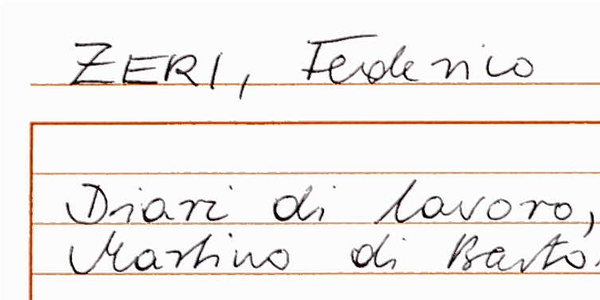 ZERI, Federico
Diari di lavoro,
Martino di Barto